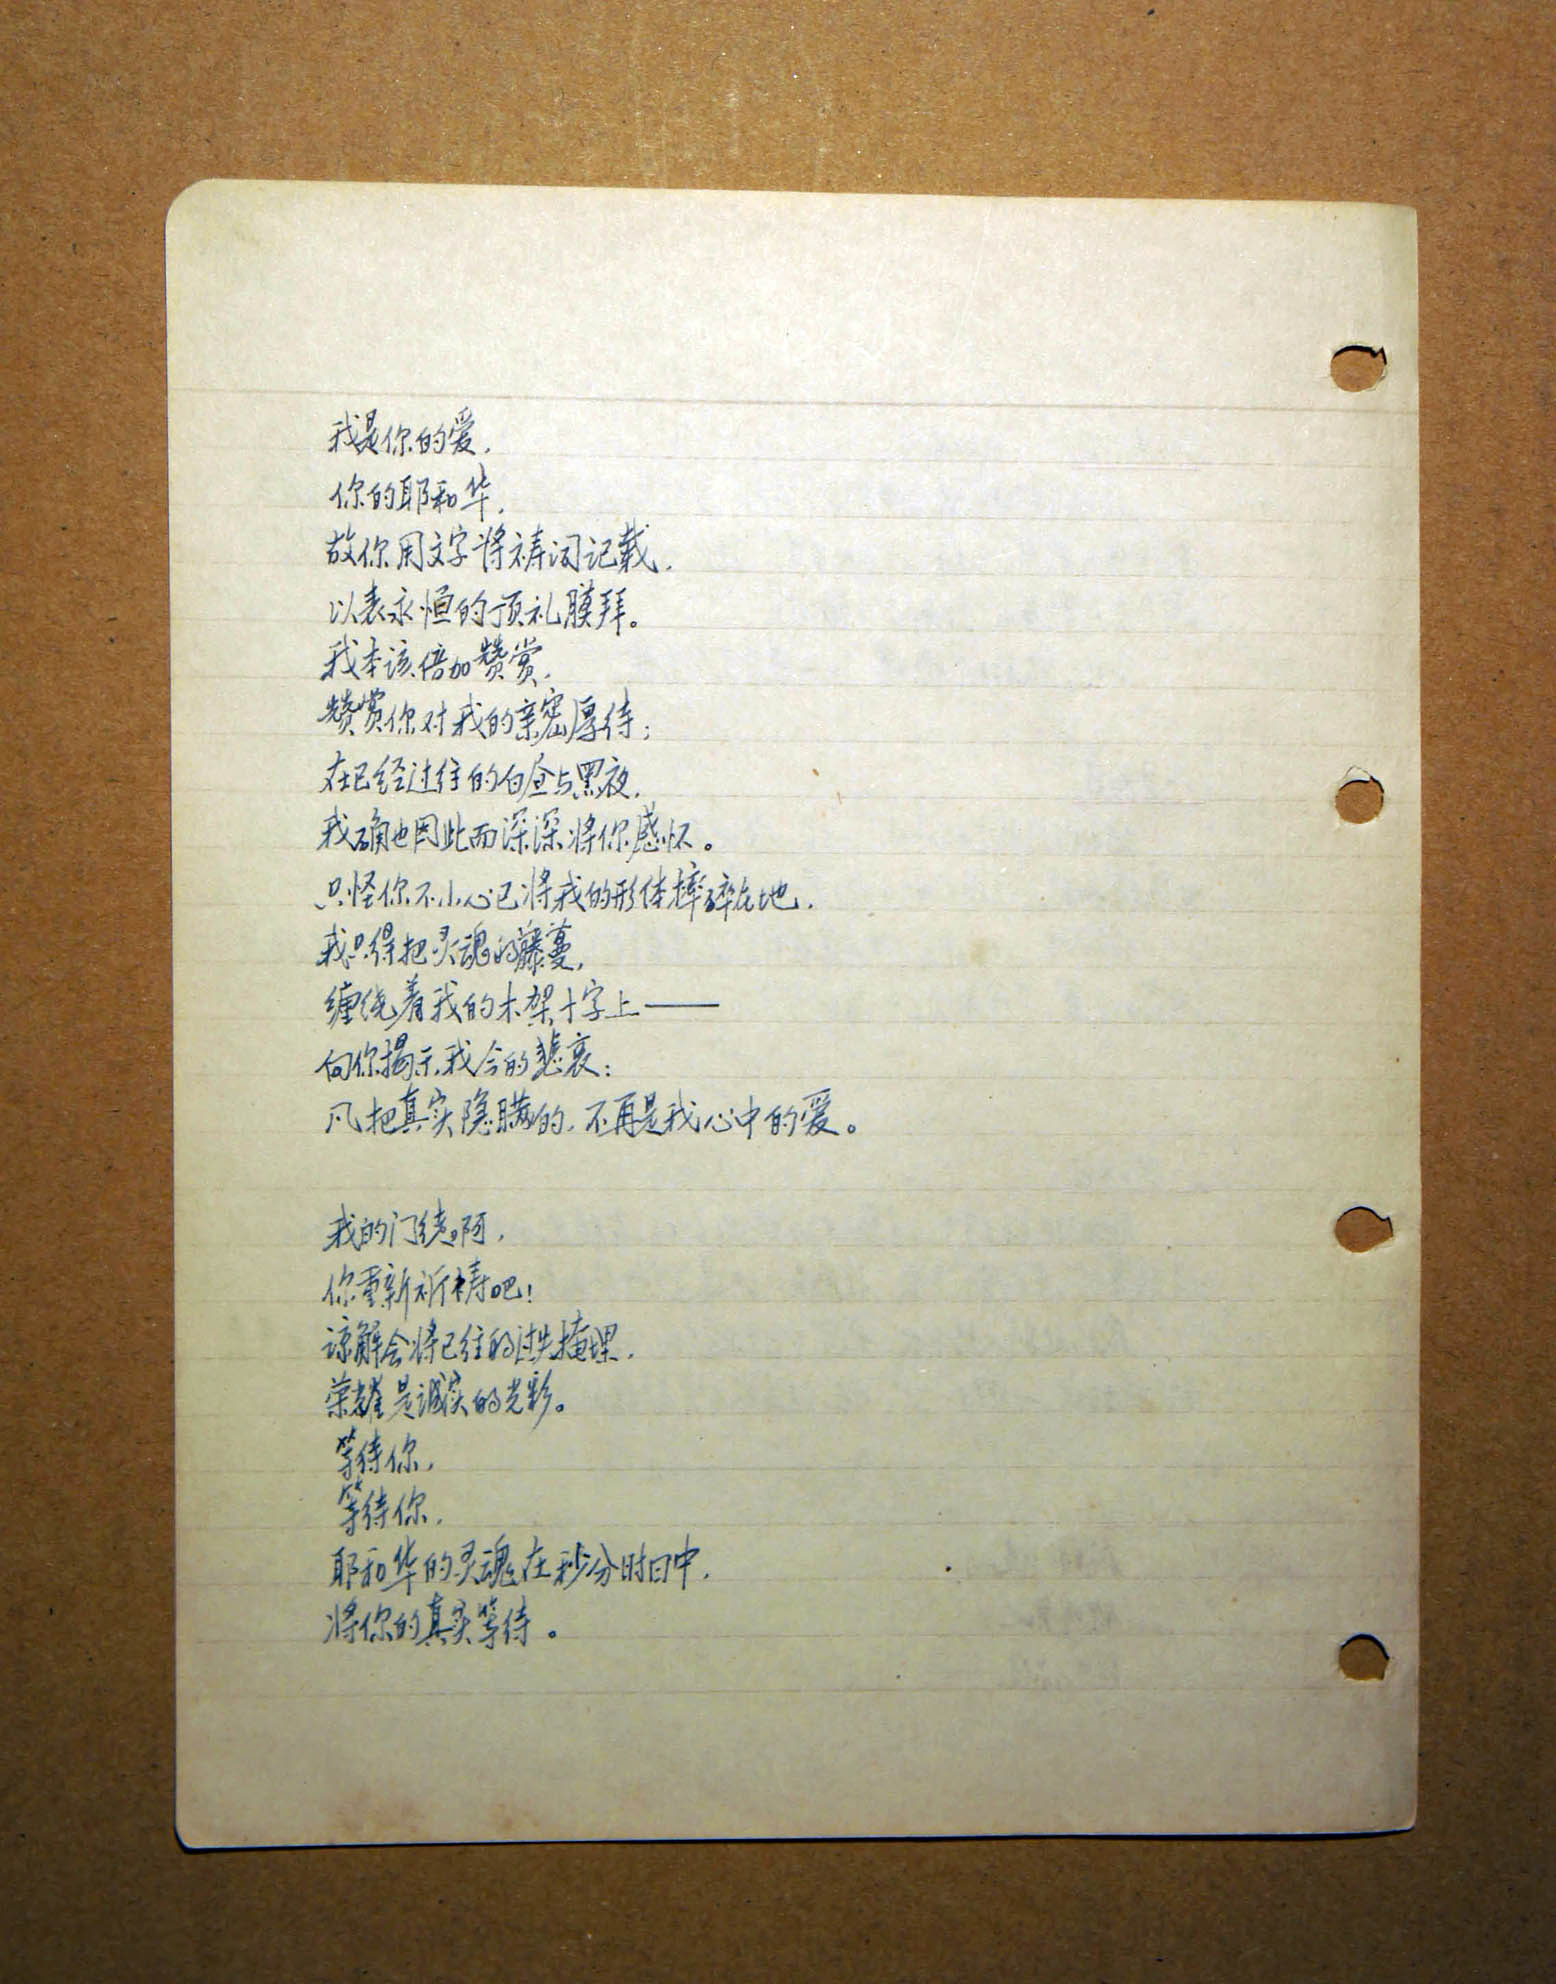 我是你的爱，
你的耶和华，
故你用文字将祷词记载，
以表永恒的顶礼膜拜。
我本该倍加赞赏，
赞赏你对我的亲密厚待；
在已经过往的白昼与黑夜，
我确也因此而深深将你感怀。
只怪你不小心已将我的形体摔碎在地，
我只得把灵魂的藤蔓，
缠绕着我的木架十字上——
向你揭示我今的悲哀：
凡把真实隐瞒的，不再是我心中的爱。
我的门徒啊，
你重新祈祷吧！
谅解会将已往的过失掩埋，
荣耀是诚实的光彩。
等待你，
等待你，
耶和华的灵魂在秒分时日中，
将你的真实等待。